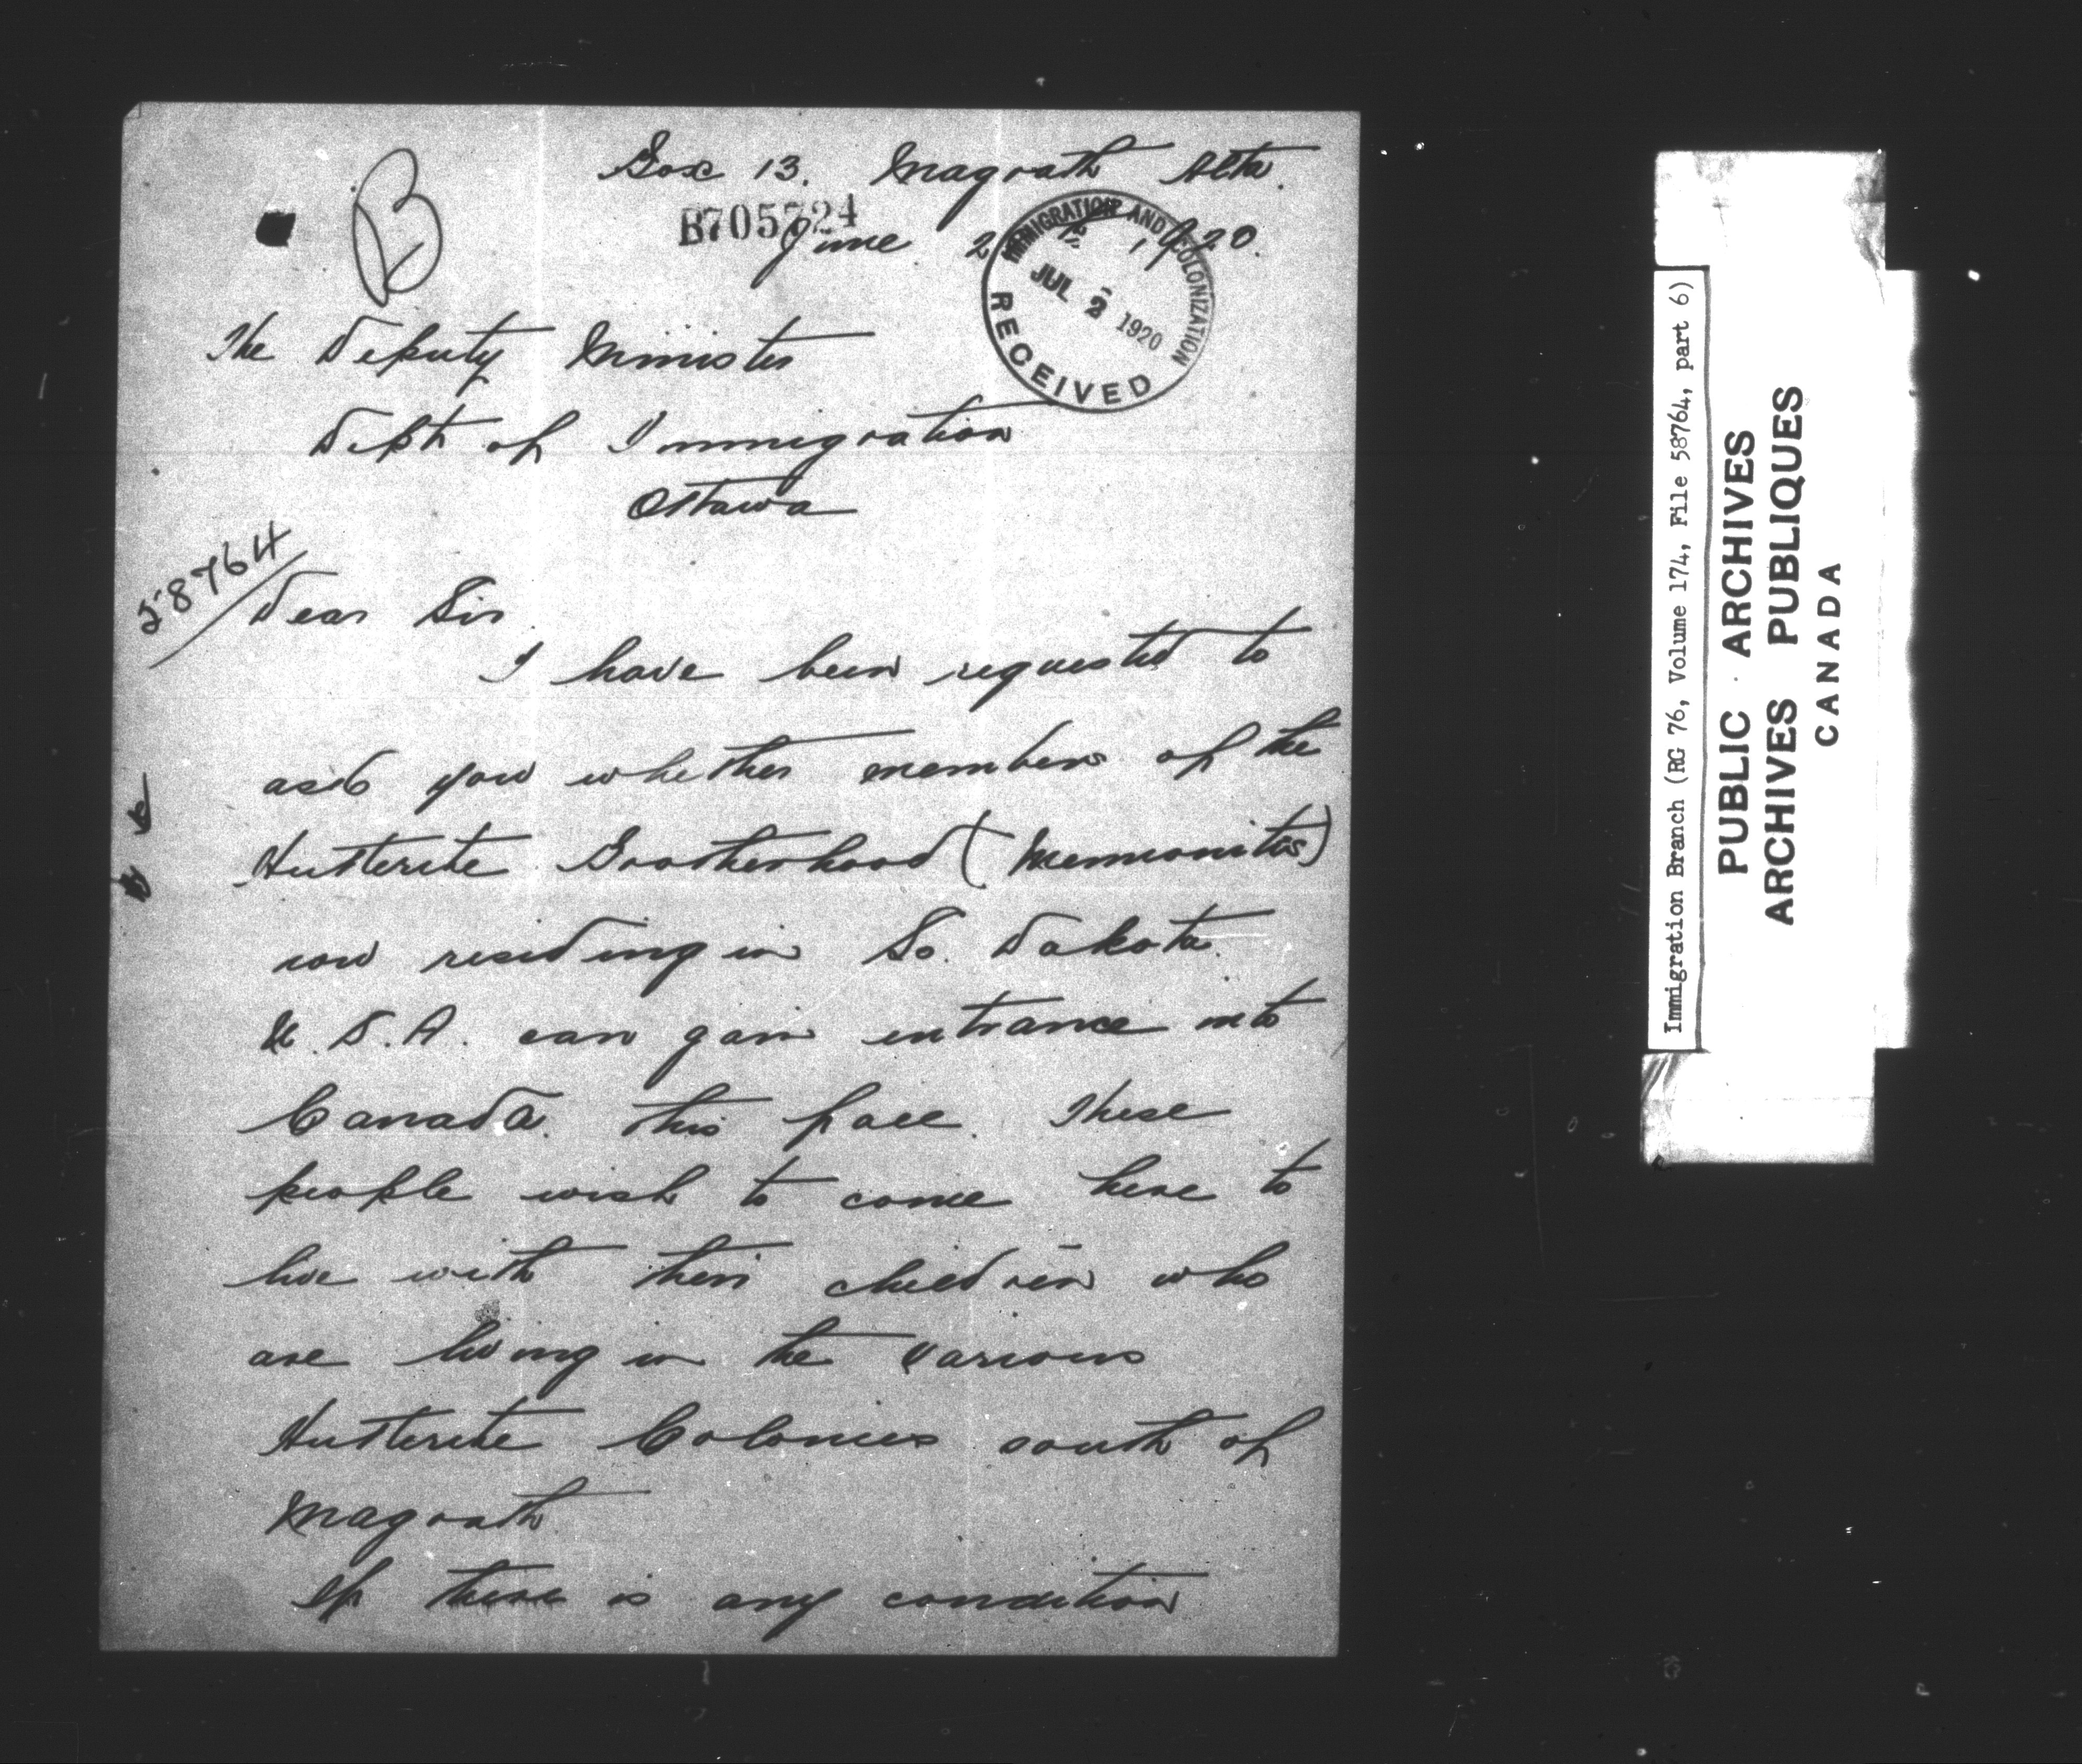 Box 13. Magrath Alta.
B705724
June 2 1920.
IMMIGRATION AND COLONIZATION
JUL 2 1920
RECEIVED
B
The Deputy Minister
Dept of Immigration
Ottawa
58764
Dear Sir
I have been requested to
ask you whether members of the
Hutterite Brotherhood (Mennonites)
now residing in So. Dakota
U.S.A. can gain entrance into
Canada this fall. These
people wish to come here to
live with their children who
are living in the various
Hutterite Colonies south of
Magrath.
If there is any condition
Immigration Branch (RG 76, Volume 174, File 58764, part 6)
PUBLIC ARCHIVES
ARCHIVES PUBLIQUES
CANADA